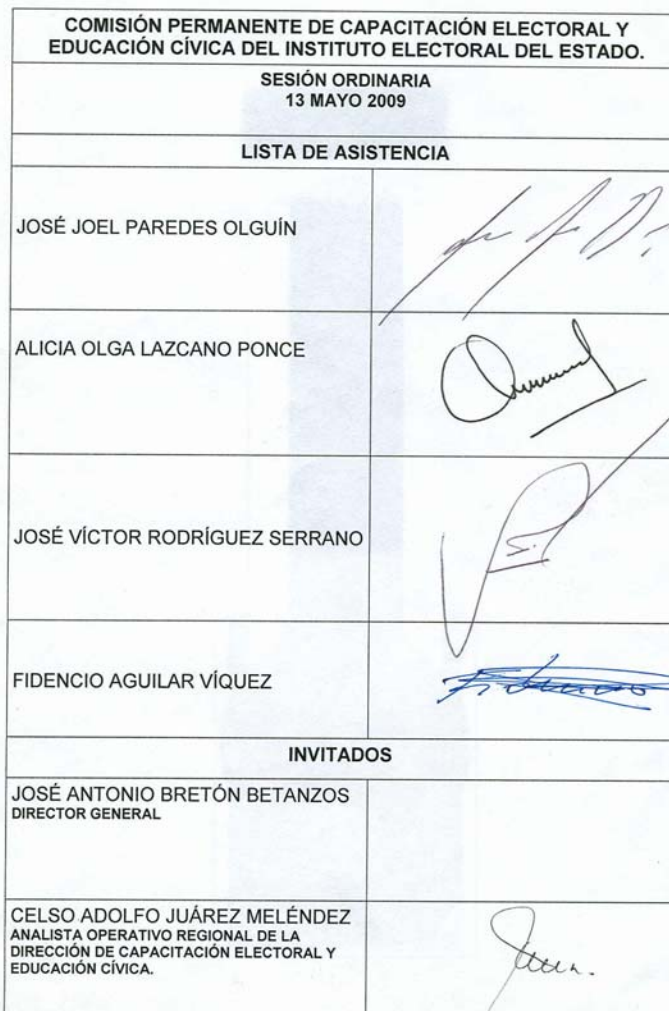 COMISIÓN PERMANENTE DE CAPACITACIÓN ELECTORAL Y
EDUCACIÓN CÍVICA DEL INSTITUTO ELECTORAL DEL ESTADO.
SESIÓN ORDINARIA
13 MAYO 2009
LISTA DE ASISTENCIA
JOSÉ JOEL PAREDES OLGUÍN
ALICIA OLGA LAZCANO PONCE
JOSÉ VÍCTOR RODRÍGUEZ SERRANO
FIDENCIO AGUILAR VÍQUEZ
INVITADOS
JOSÉ ANTONIO BRETÓN BETANZOS
DIRECTOR GENERAL
CELSO ADOLFO JUÁREZ MELÉNDEZ
ANALISTA OPERATIVO REGIONAL DE LA
DIRECCIÓN DE CAPACITACIÓN ELECTORAL Y
EDUCACIÓN CÍVICA.